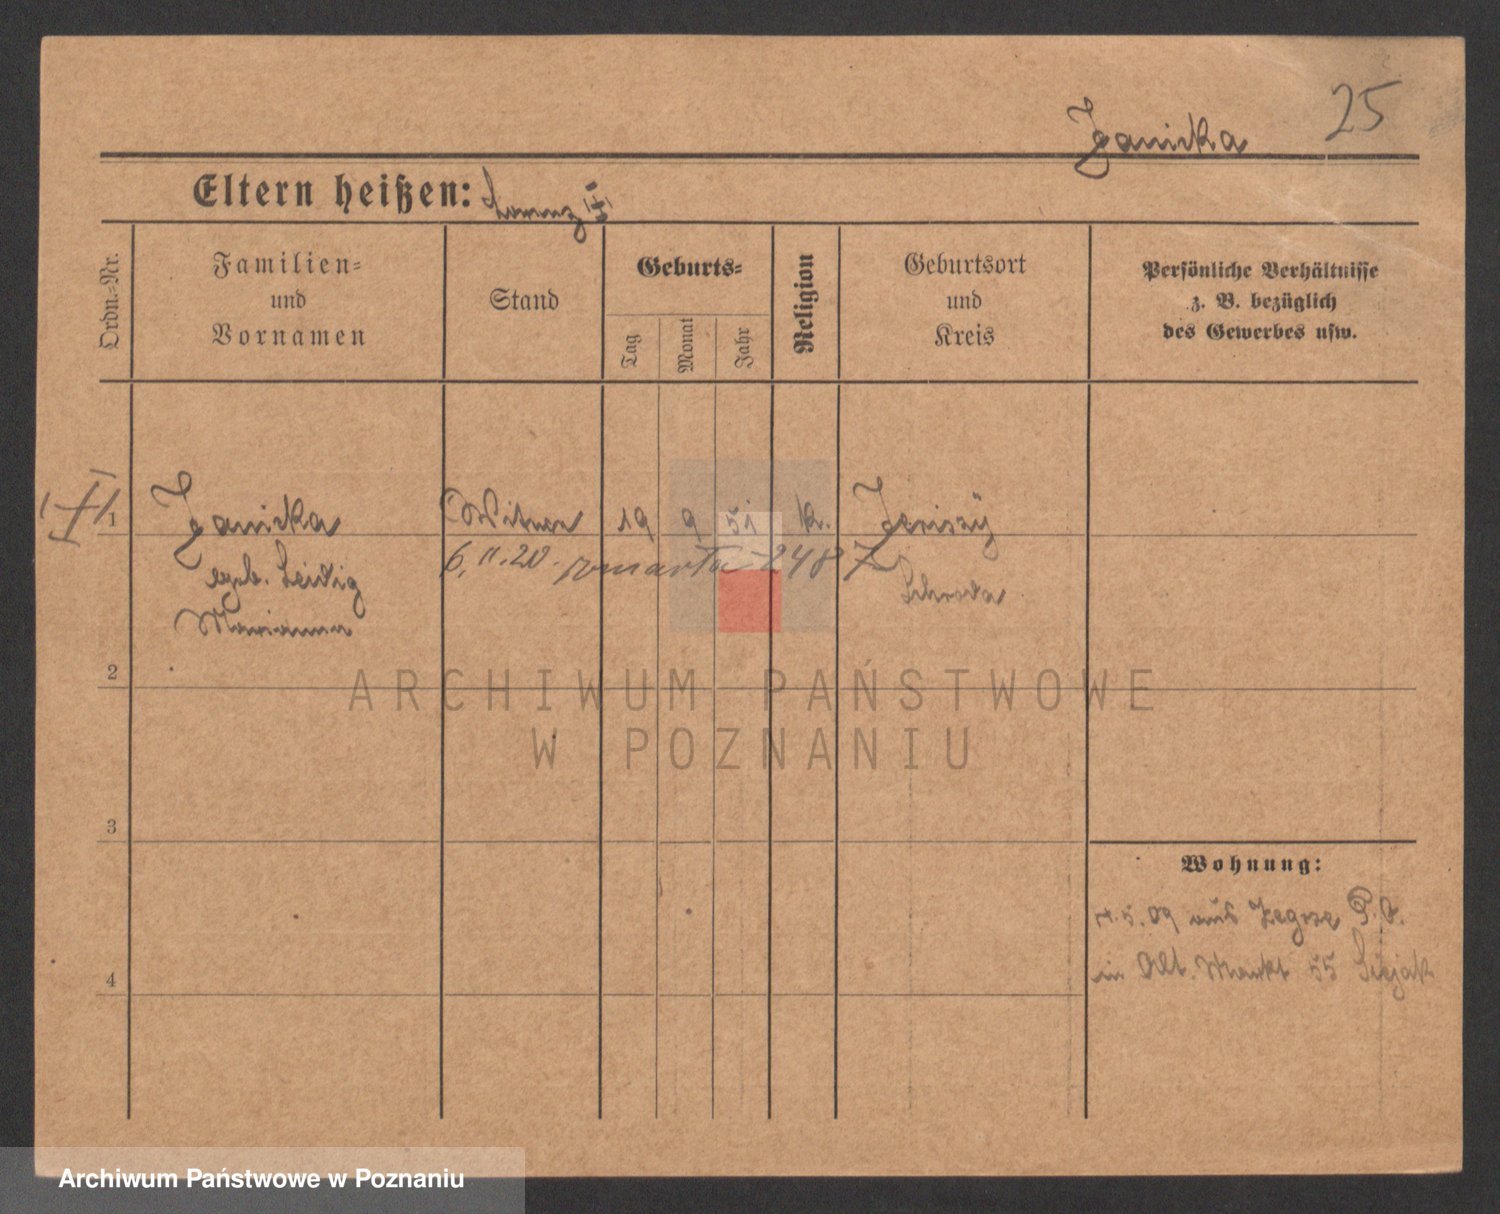 25
Eltern heißen:
Lorenz
Ordn.-Nr.
Familien-
und
Vornamen
Stand
Geburts-
Tag
Monat
Jahr
Religion
Geburtsort
und
Kreis
Persönliche Verhältnisse
z. B. bezüglich
des Gewerbes usw.
1
19 9 51 k.
geb.
6. 11. 20. zmarła 2487
Schroda
Marianna
2
ARCHIWUM PAŃSTWOWE
W POZNANIU
3
Wohnung:
5. 09 aus Zegrze P. O.
in Alt. Markt 55
4
Archiwum Państwowe w Poznaniu